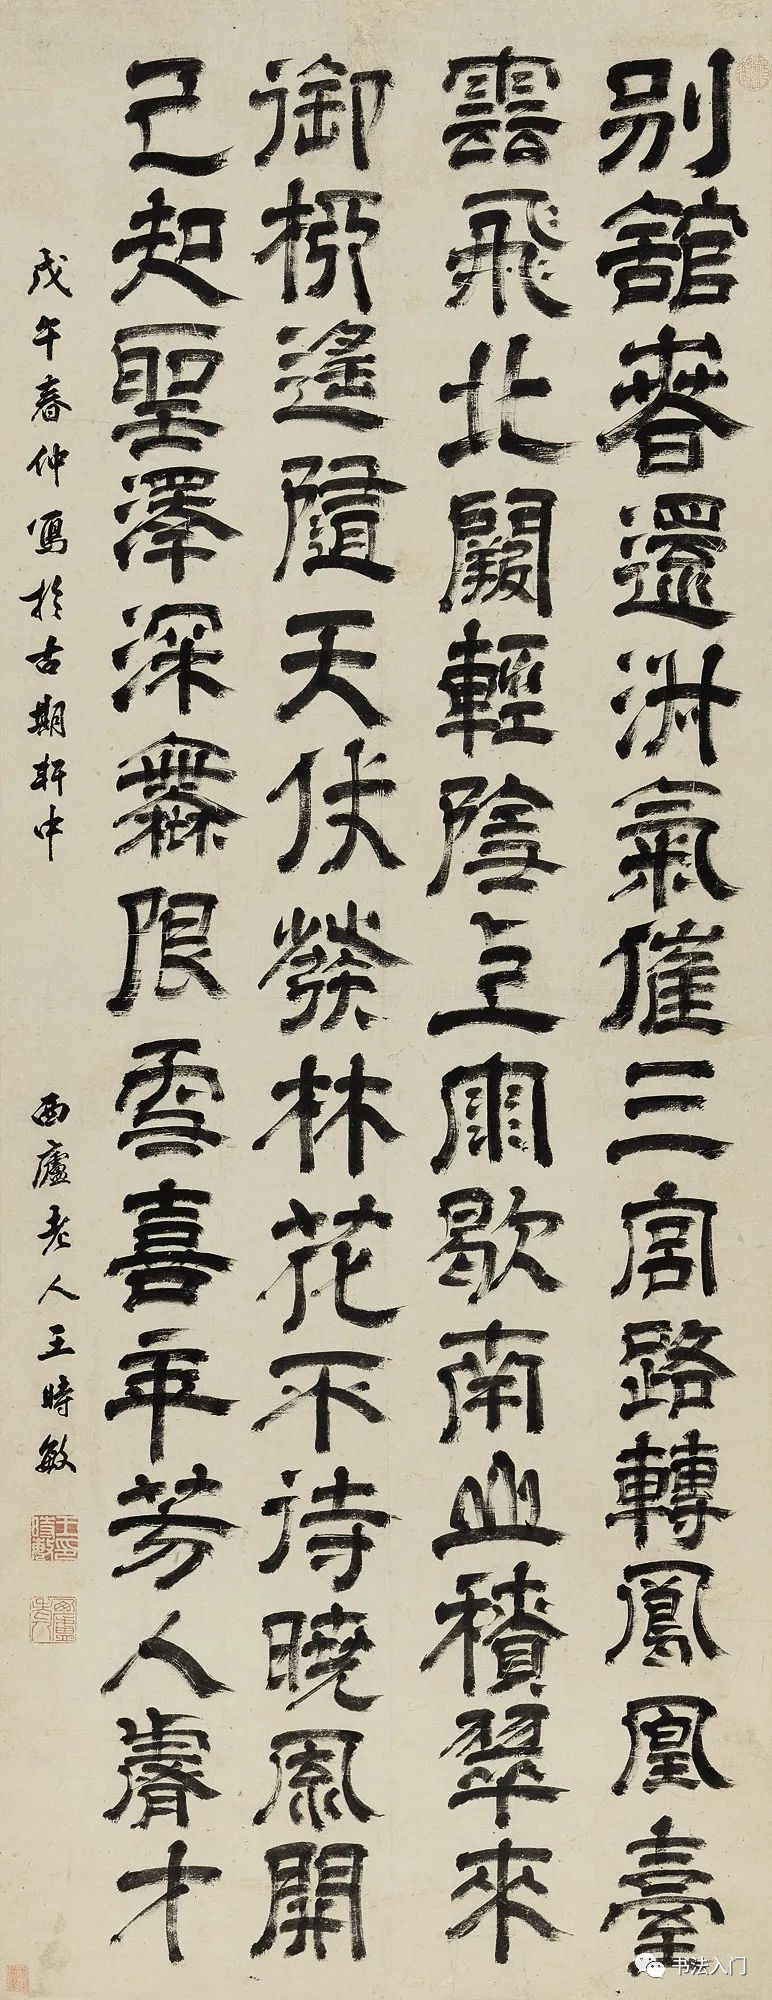 別館春還淑氣催三宮路轉鳳凰臺
雲飛北闕輕陰雨歇南山積翠來
御柳遙隨天仗發林花不待曉風開
已知聖澤深無限更喜年芳入睿才
戊午春仲寫於古期軒中
西廬老人王時敏
书法入门